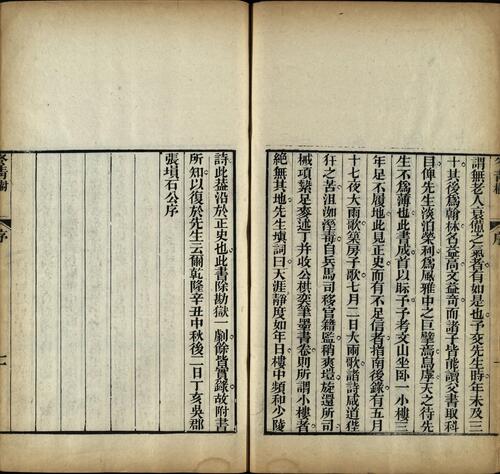 謂無老人衰憊之氣者有如是也予交先生時年未及三
十其後爲翰林名益高文益奇而諸子皆能讀父書取科
目俾先生淡泊榮利爲風雅中之巨擘焉烏摩天之待先
生不爲薄也此書成首以眎予予考文山坐臥一小樓三
年足不履地此見正史而有不足信者指南後錄有五月
十七夜大雨歌築房子歌七月二日大雨歌諸詩咸道狴
犴之苦沮洳溼毒自兵馬司移官籍監稍爽塏旋還所司
械項縶足麥述丁幷收公棋奕筆墨書卷則所謂小樓者
絶無其地先生塡詞曰天涯靜度如年日樓中頻和少陵
詩此葢沿於正史也此書除勘獄一齣餘皆實錄故附書
所知以復於先生云爾乾隆辛丑中秋後二日丁亥吳郡
張塤石公序
序
序